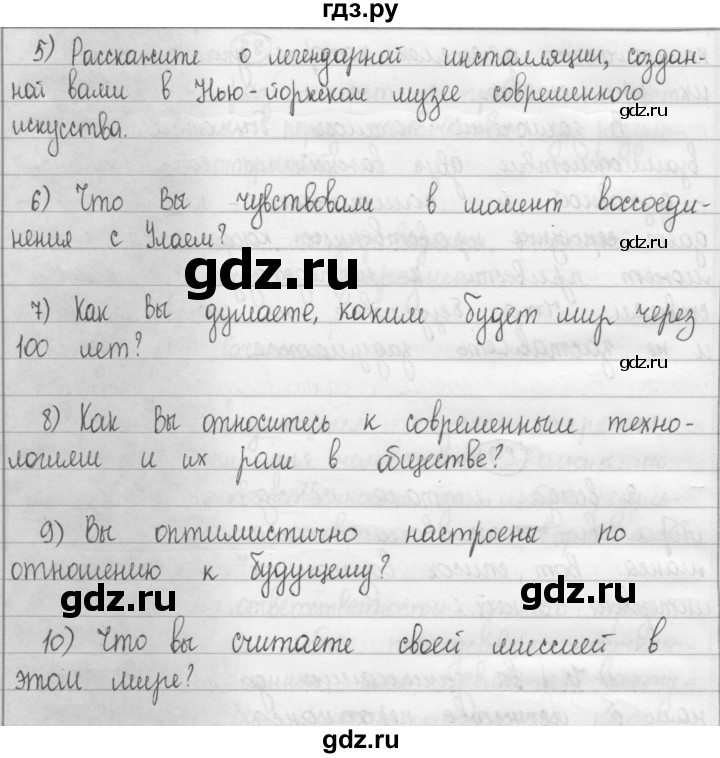 гдз.ру
5) Расскажите о легендарной инсталляции, создан-
ной вами в Нью-йоркском музее современного
искусства.
6) Что Вы чувствовали в момент воссоеди-
нения с Улаем?
gdz.ru
gdz.ru
7) Как Вы думаете, каким будет мир через
100 лет?
gdz.ru
8) Как Вы относитесь к современным техно-
логиям и их роли в обществе?
9) Вы оптимистично настроены по
отношению к будущему?
gdz.ru
gdz.ru
10) Что вы считаете своей миссией в
этом мире?
gdz.ru